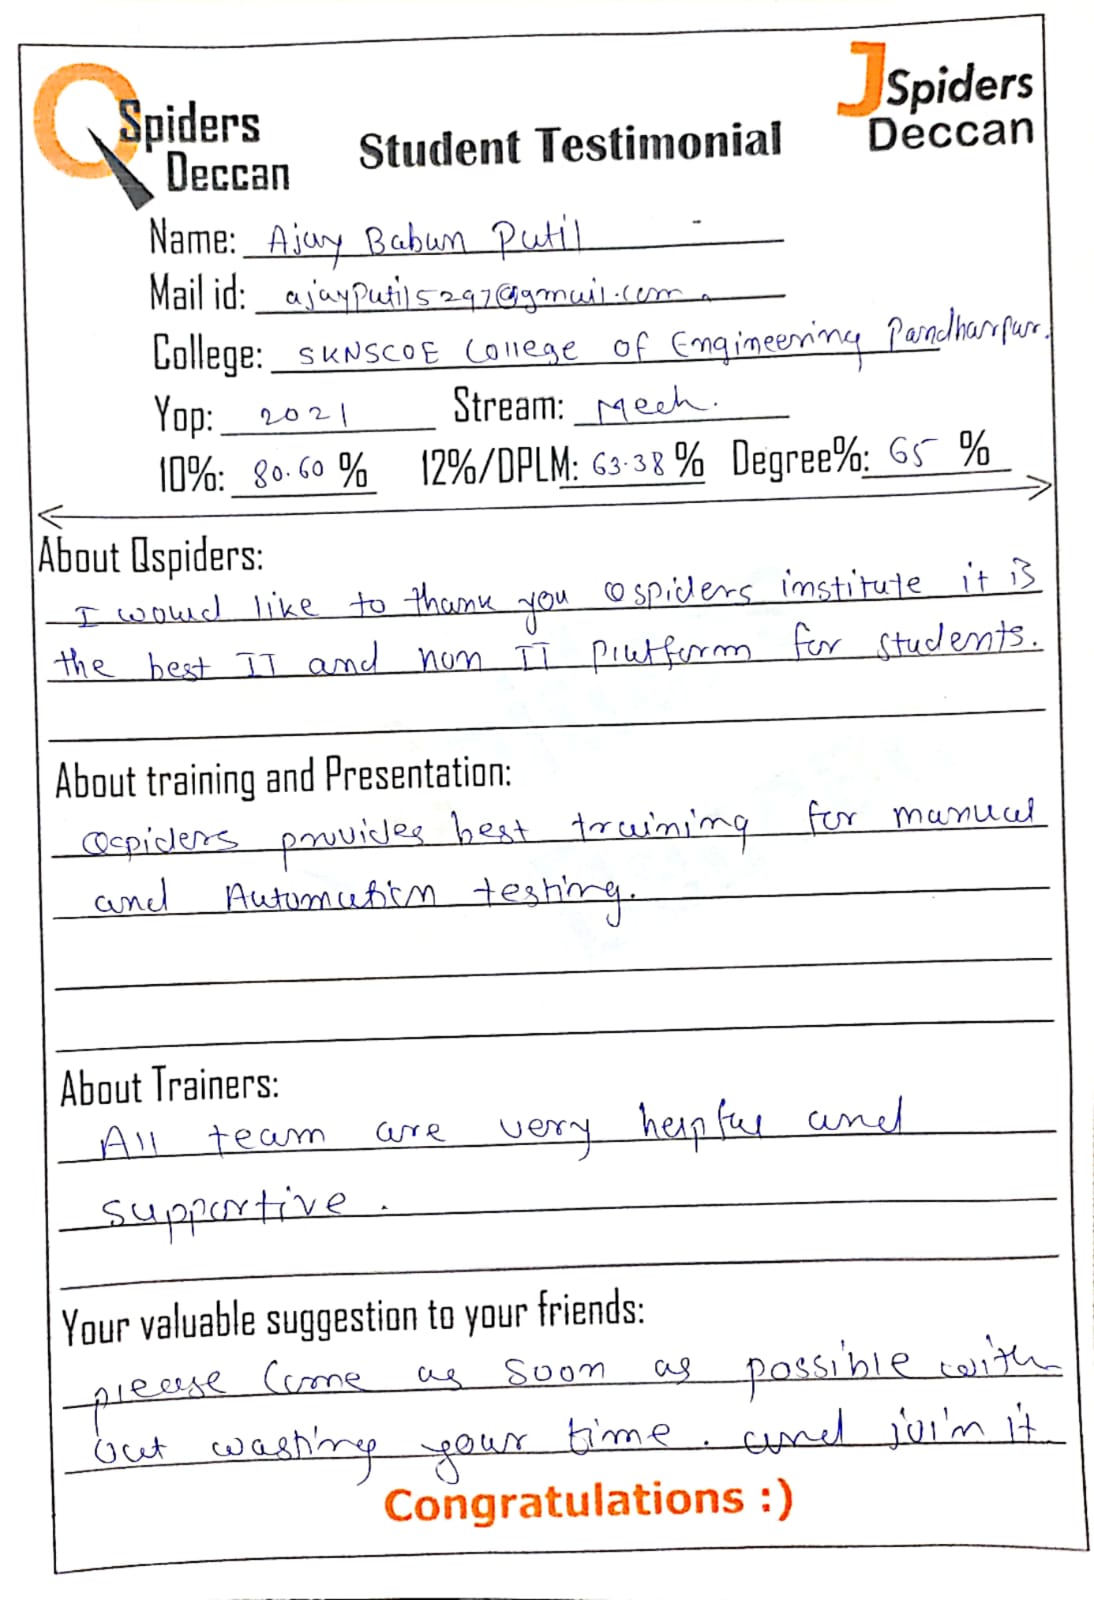 QSpiders
Deccan
Student Testimonial
JSpiders
Deccan
Name: Ajay Baban Patil
Mail id: ajaypatil5297@gmail.com.
College: SKNSCOE College of Engineering Pandharpur.
Yop: 2021 Stream: Mech.
10%: 80.60 % 12%/DPLM: 63.38 % Degree%: 65 %
About Qspiders:
I would like to thank you Qspiders institute it is
the best IT and non IT platform for students.
About training and Presentation:
Qspiders provides best training for manual
and Automation testing.
About Trainers:
All team are very helpful and
supportive.
Your valuable suggestion to your friends:
please come as soon as possible with
out wasting your time. and join it
Congratulations :)